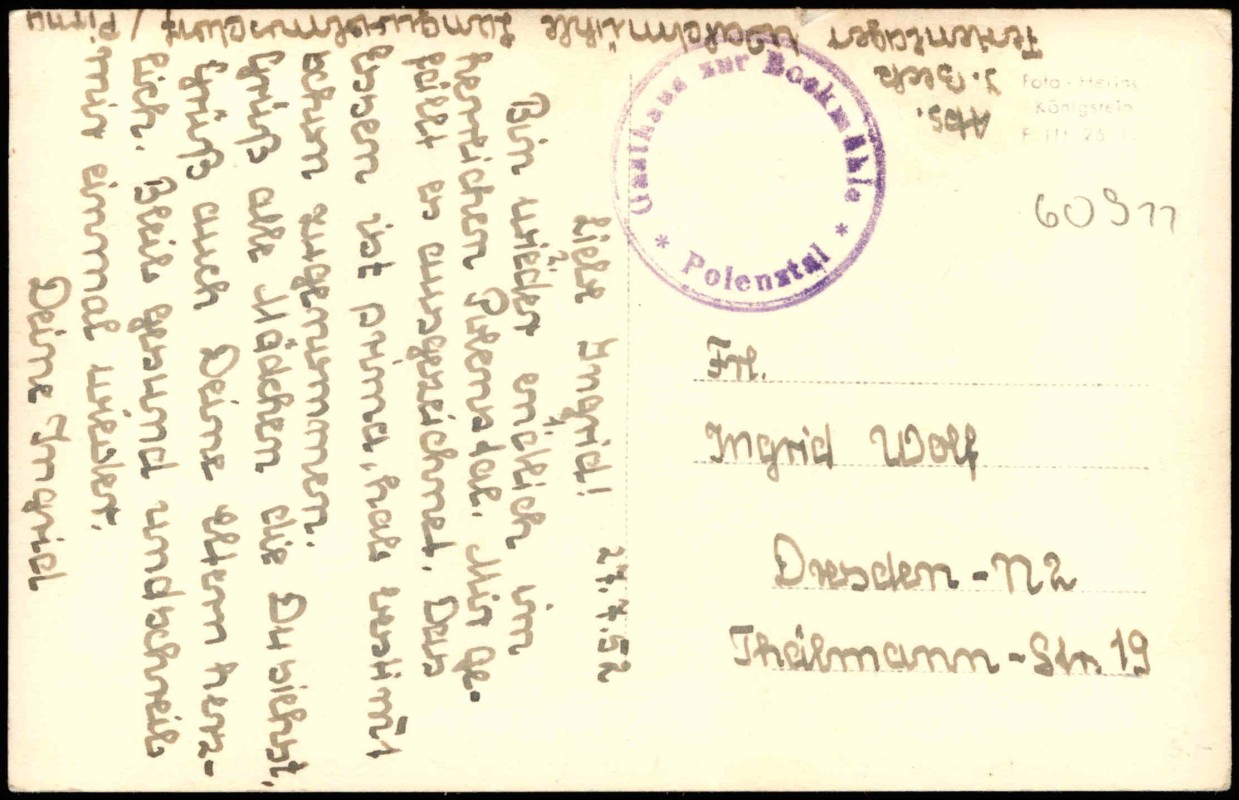 Liebe Ingrid! 27.7.52
Bin wieder endlich im
herrlichen Polenztal. Mir ge-
fällt es ausgezeichnet. Das
Essen ist prima, hab bestimt
schon zugenommen.
Grüß alle Mädchen die Du siehst.
Grüß auch Deine Eltern herz-
lich. Bleib gesund und schreib
mir einmal wieder.
Deine Ingrid
Abs.
I.
Ferienlager Bockmühle / Pirna
Gasthaus zur Bockmühle
* Polenztal *
Foto - Hering
Königstein
60911
Frl.
Ingrid Wolf
Dresden - N2
Thälmann - Str. 19